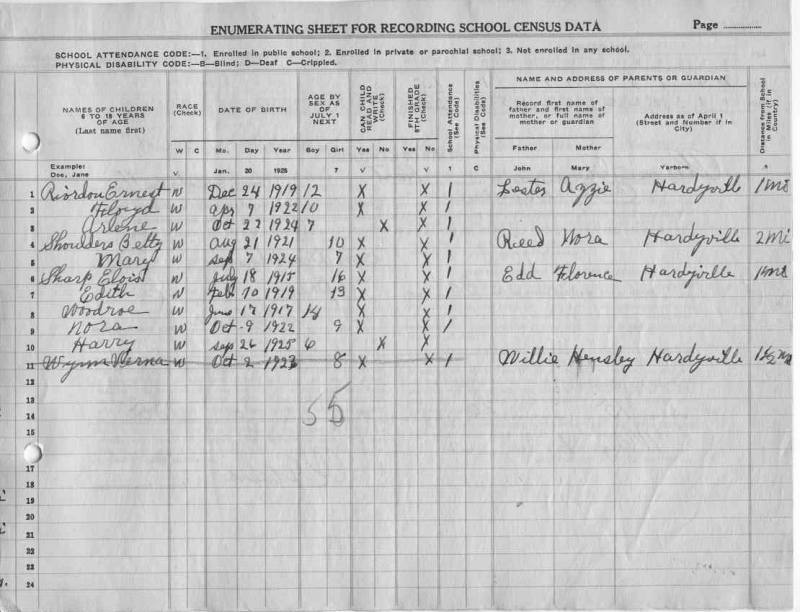 ENUMERATING SHEET FOR RECORDING SCHOOL CENSUS DATA Page
SCHOOL ATTENDANCE CODE:—1. Enrolled in public school; 2. Enrolled in private or parochial school; 3. Not enrolled in any school.
PHYSICAL DISABILITY CODE:—B—Blind; D—Deaf C—Crippled.
NAMES OF CHILDREN 6 TO 18 YEARS OF AGE (Last name first)
RACE (Check)
DATE OF BIRTH
AGE BY SEX AS OF JULY 1 NEXT
CAN CHILD READ AND WRITE (Check)
FINISHED 8TH GRADE (Check)
School Attendance (See Code)
Physical Disabilities (See Code)
NAME AND ADDRESS OF PARENTS OR GUARDIAN
Record first name of father and first name of mother, or full name of mother or guardian
Address as of April 1 (Street and Number if in City)
Distance from School in Miles (if in Country)
W C Mo. Day Year Boy Girl Yes No Yes No Father Mother
Example: Doe, Jane V. Jan. 20 1925 7 V V 1 C John Mary
1 Riordon Ernest W Dec 24 1919 12 X X 1 Lester Hardyville 1 mi
2 Floyd W apr 7 1922 10 X X 1
3 Arlene W Oct 22 1924 7 X X 1
4 Shoulders Betty W Aug 21 1921 10 X X 1 Reed Nora Hardyville 2 mi
5 Mary W sep 7 1924 7 X X 1
6 Sharp W July 18 1915 16 X X 1 Edd Florence Hardyville
7 Edith W Feb 10 1919 13 X X 1
8 Woodroe W June 17 1917 14 X X 1
9 Nora W Oct 9 1922 9 X X 1
10 Harry W sep 26 1925 6 X X
11 Wynn Verna W Oct 2 1923 8 X X 1 Willie Hensley Hardyville 1½ mi
12
13
14 5 5
15
17
18
19
20
21
22
23
24